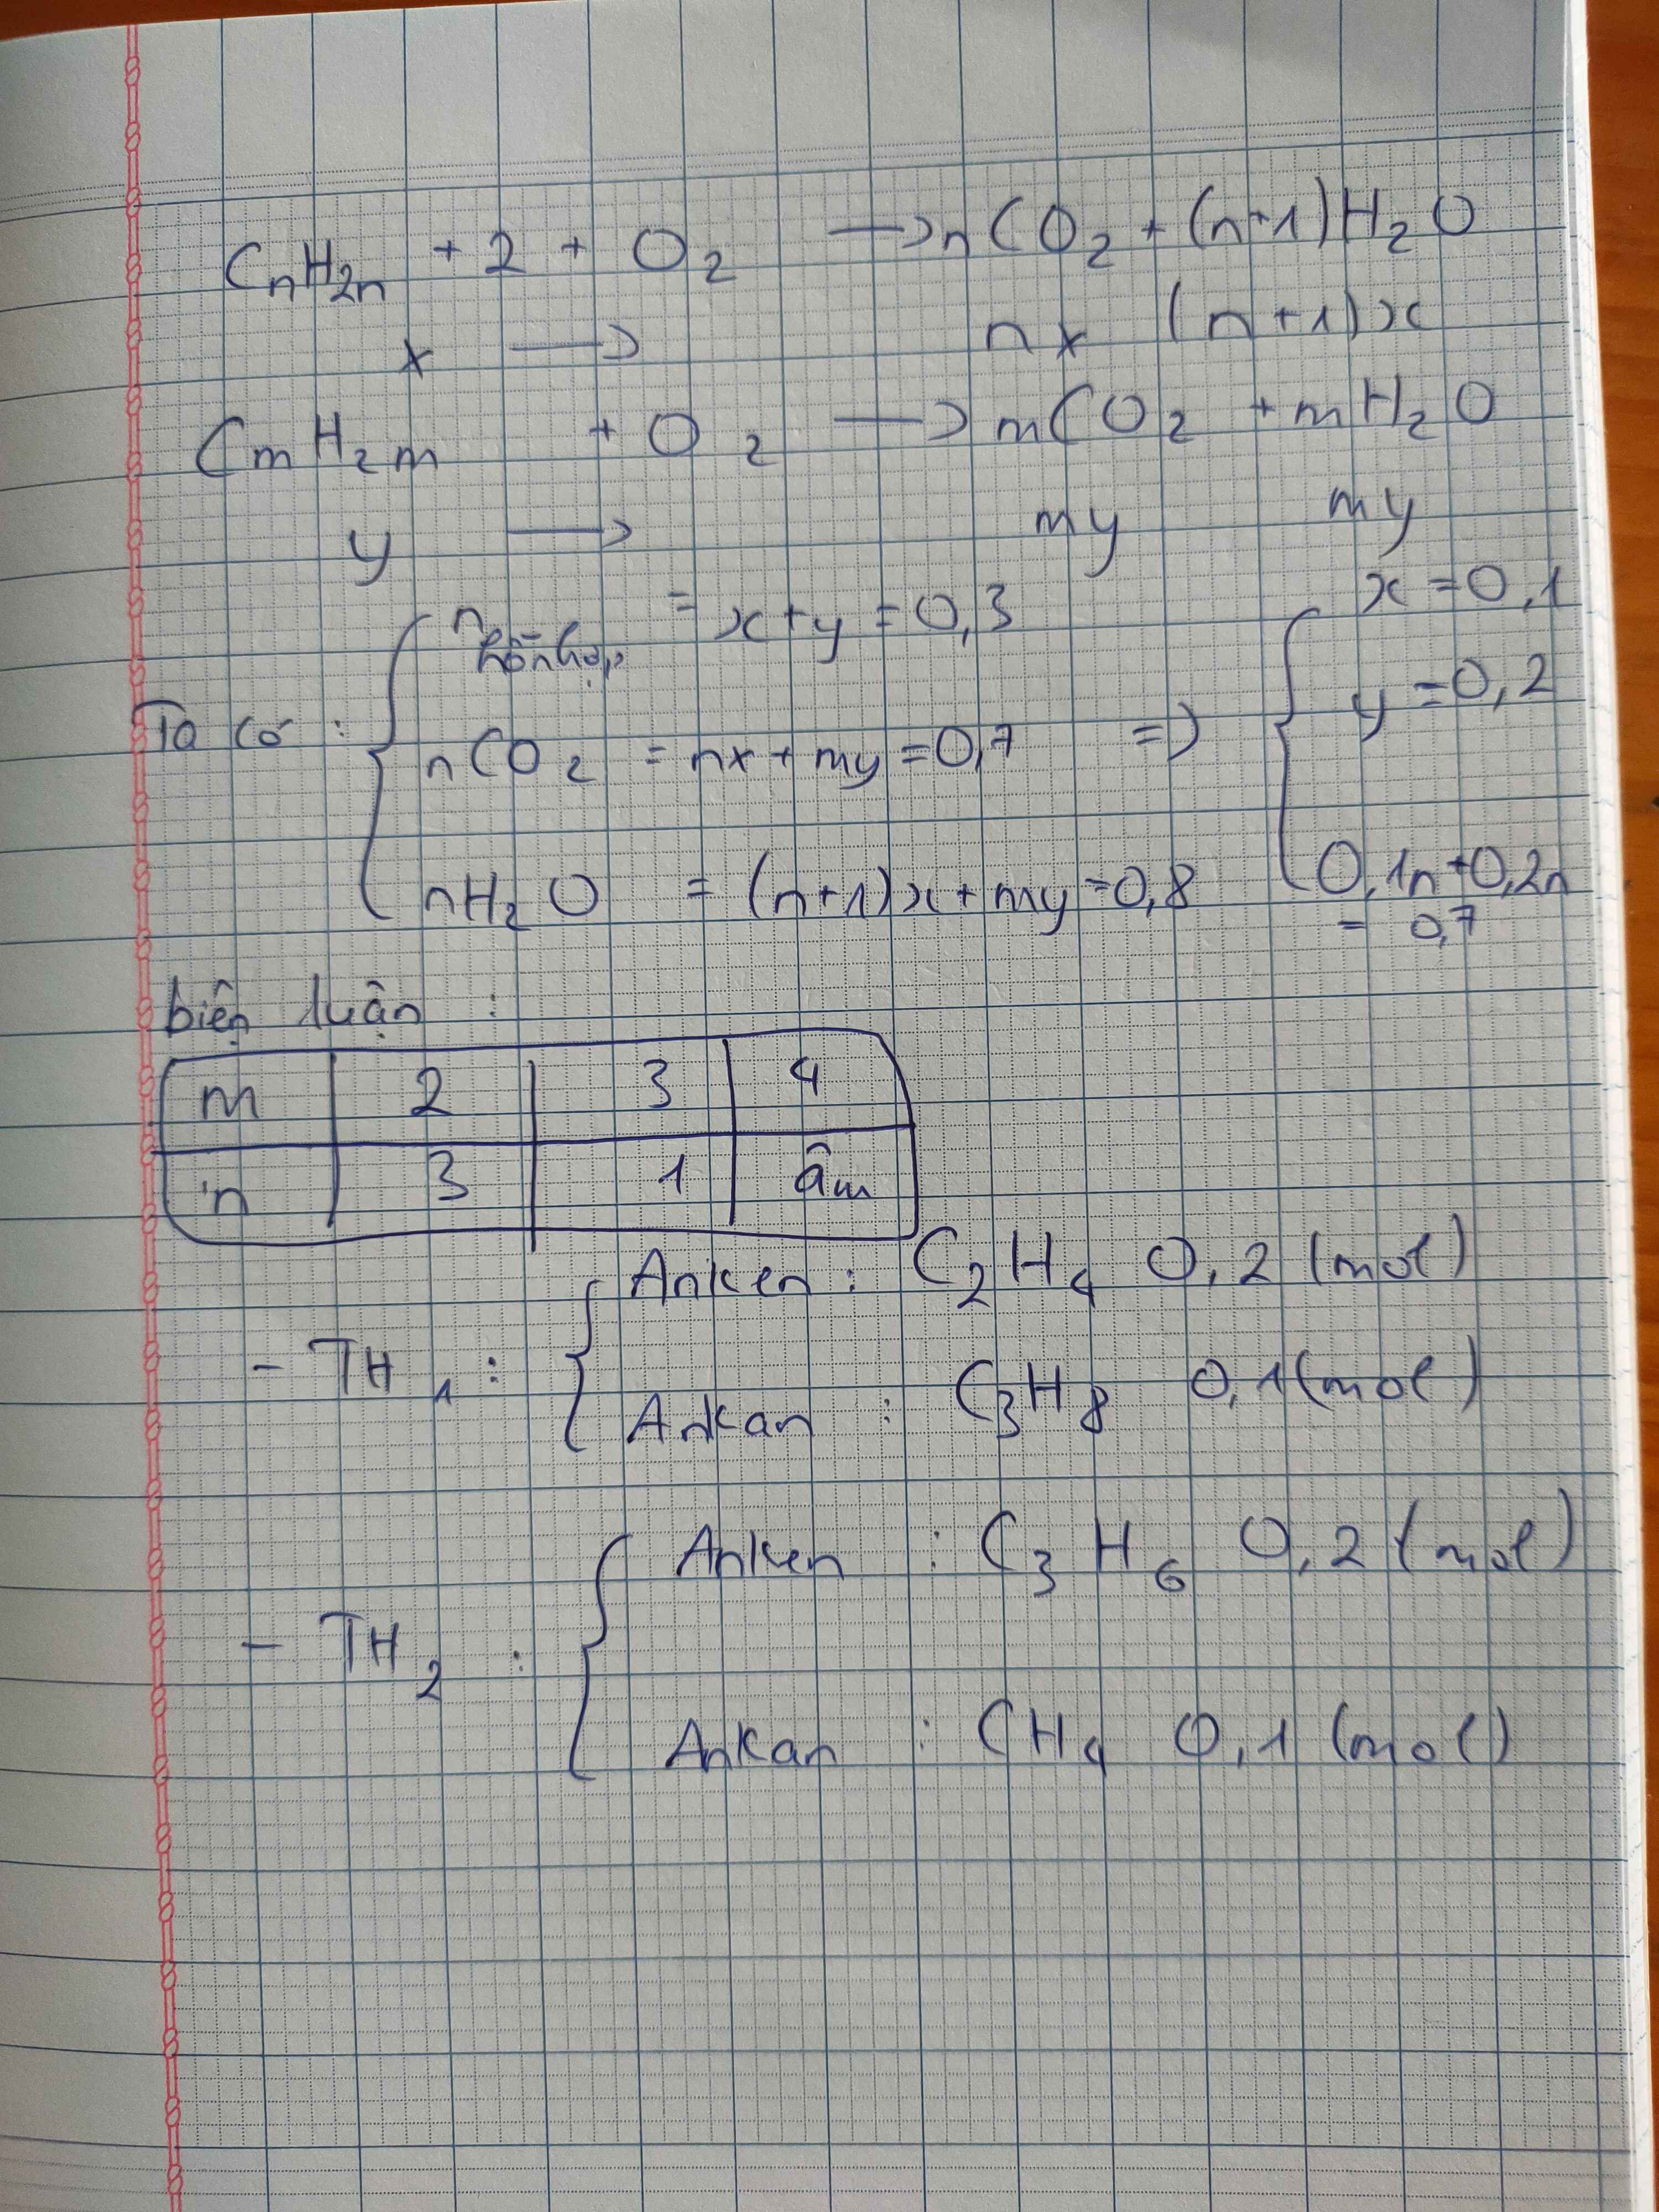 CnH2n + 2 + O2 → nCO2 + (n+1)H2O
x → nx (n+1)x
CmH2m + O2 → mCO2 + mH2O
y → my my
Ta có : { n hỗn hợp = x+y = 0,3
nCO2 = nx + my = 0,7
nH2O = (n+1)x + my = 0,8
=> { x = 0,1
y = 0,2
0,1n + 0,2n
= 0,7
biện luận :
m 2 3 4
n 3 1 âm
- TH1 : { Anken : C2H4 0,2 (mol)
Ankan : C3H8 0,1 (mol)
- TH2 : { Anken : C3H6 0,2 (mol)
Ankan : CH4 0,1 (mol)